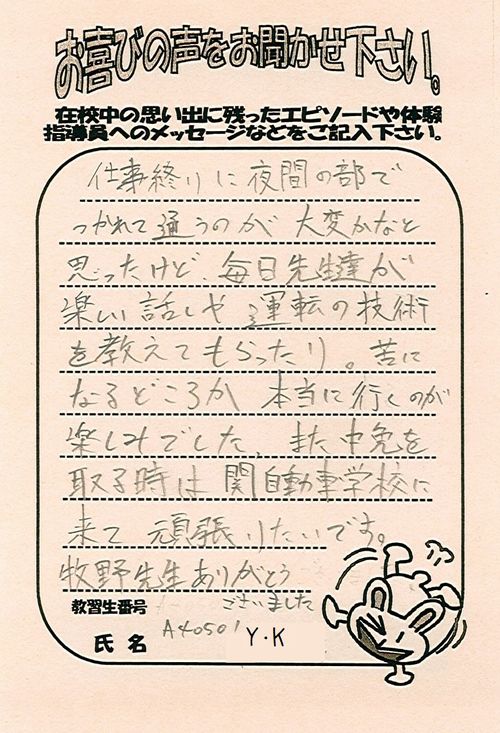 お喜びの声をお聞かせ下さい。
在校中の思い出に残ったエピソードや体験
指導員へのメッセージなどをご記入下さい。
仕事終りに夜間の部で
つかれて通うのが 大変かなと
思ったけど、毎日先生達が
楽しい話しや 運転の技術
を教えてもらったり。苦に
なるどころか 本当に行くのが
楽しみでした。また中免を
取る時は 関自動車学校に
来て 頑張りたいです。
牧野先生ありがとう
ございました
教習生番号 A40501
氏名 Y・K